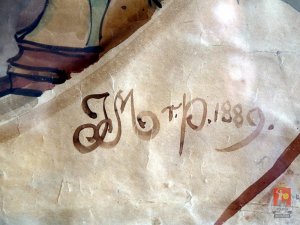 JM r.p. 1889.